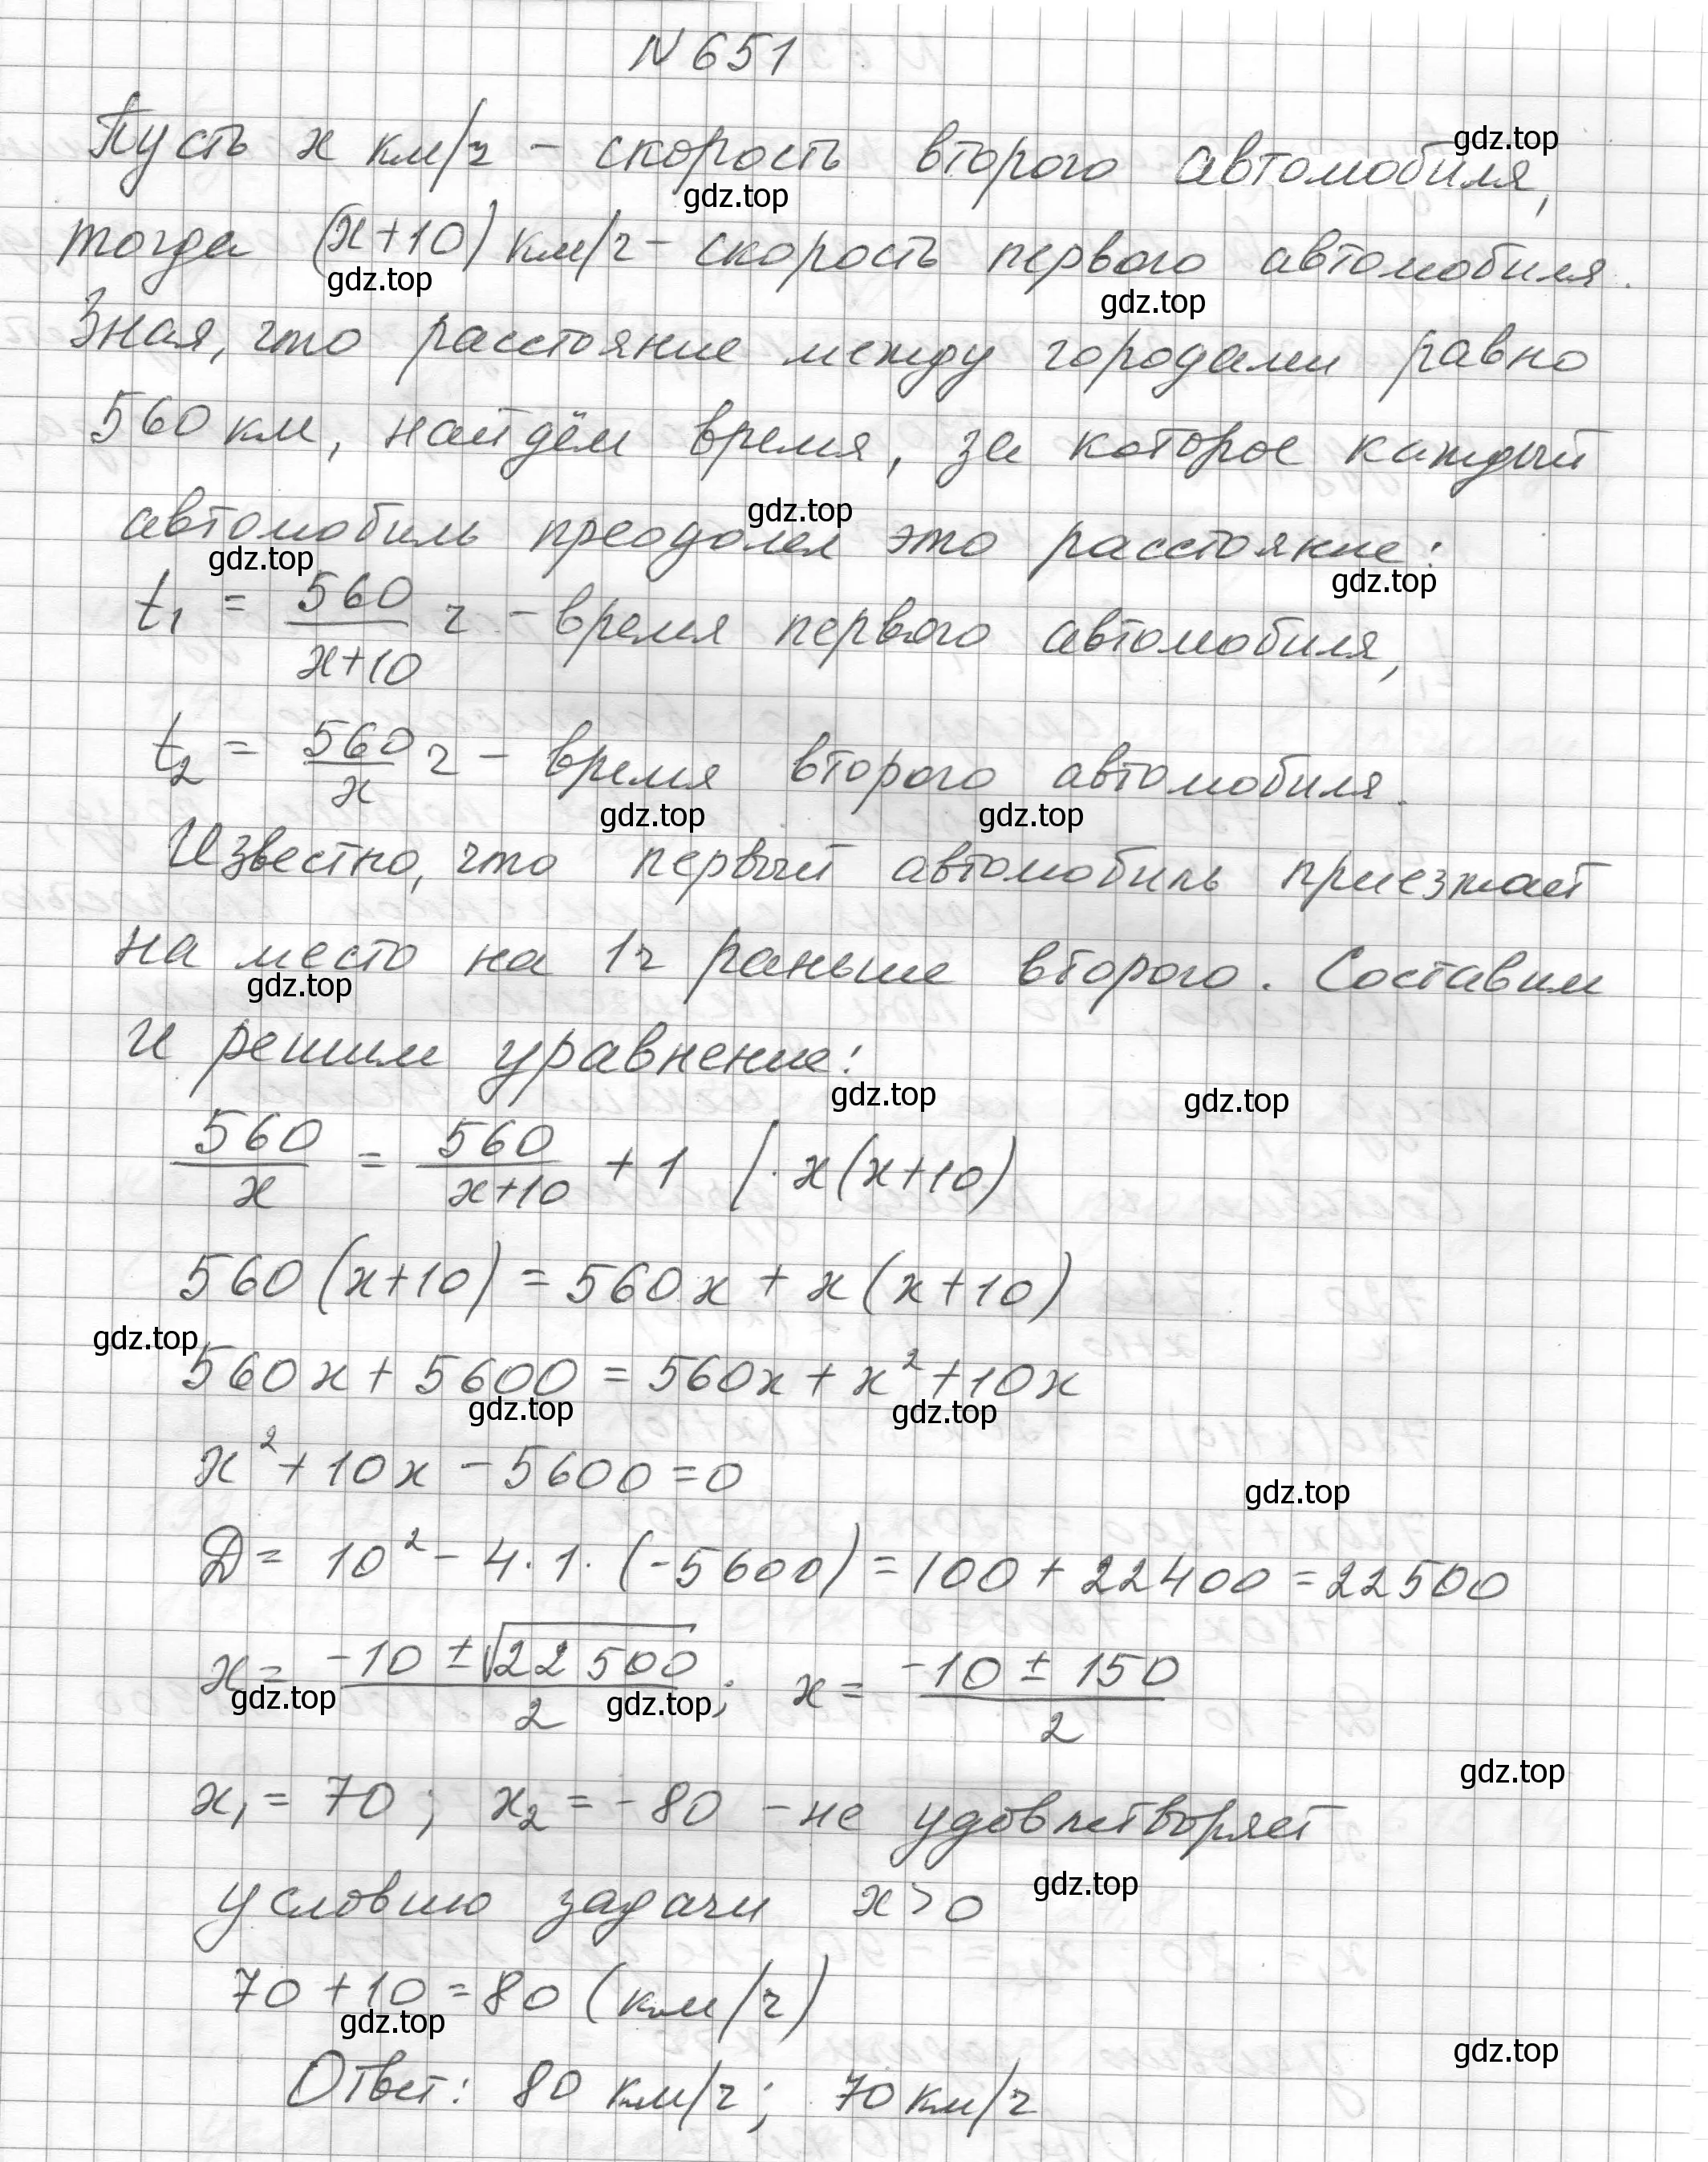 N 651
gdz.top
Пусть x км/ч - скорость второго автомобиля,
gdz.top
тогда (x+10) км/ч - скорость первого автомобиля.
gdz.top
gdz.top
Зная, что расстояние между городами равно
560 км, найдём время, за которое каждый
gdz.top
автомобиль преодолел это расстояние:
gdz.top
gdz.top
t₁ = 560/(x+10) ч - время первого автомобиля,
t₂ = 560/x ч - время второго автомобиля.
gdz.top gdz.top
Известно, что первый автомобиль приезжает
на место на 1ч раньше второго. Составим
gdz.top
и решим уравнение:
gdz.top gdz.top
560/x = 560/(x+10) + 1 |· x(x+10)
560(x+10) = 560x + x(x+10)
gdz.top
560x + 5600 = 560x + x² + 10x
gdz.top gdz.top
x² + 10x - 5600 = 0
gdz.top
D = 10² - 4·1·(-5600) = 100 + 22400 = 22500
x = (-10 ± √22500)/2; x = (-10 ± 150)/2
gdz.top gdz.top
gdz.top
x₁ = 70; x₂ = -80 - не удовлетворяет
gdz.top
условию задачи x > 0
70 + 10 = 80 (км/ч)
gdz.top
gdz.top
Ответ: 80 км/ч; 70 км/ч